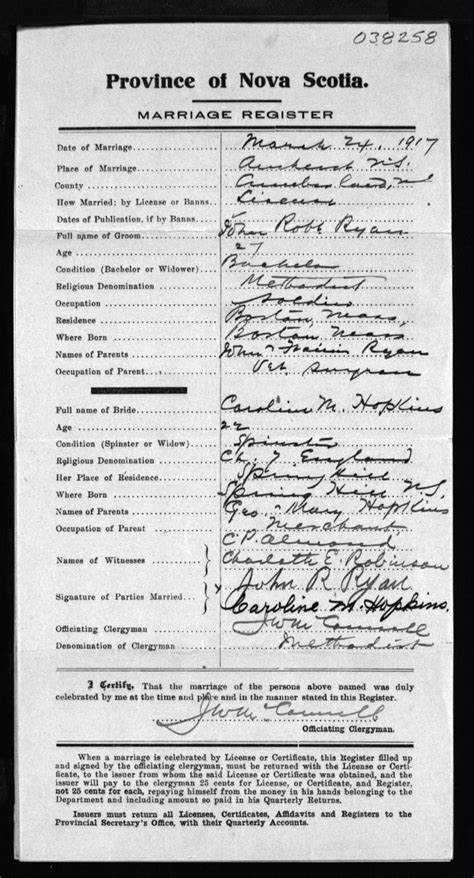 038258
Province of Nova Scotia.
MARRIAGE REGISTER
Date of Marriage March 24, 1917
Place of Marriage Amherst N.S.
County Cumberland, N.S.
How Married; by License or Banns License
Dates of Publication, if by Banns
Full name of Groom John Robt Ryan
Age 27
Condition (Bachelor or Widower) Bachelor
Religious Denomination Methodist
Occupation Soldier
Residence Boston, Mass,
Where Born Boston, Mass
Names of Parents John & Ryan
Occupation of Parent Vet. Surgeon
Full name of Bride Caroline M. Hopkins
Age 22
Condition (Spinster or Widow) Spinster
Religious Denomination Ch. of England
Her Place of Residence Spring Hill
Where Born Spring Hill N.S.
Names of Parents Geo. & Mary Hopkins
Occupation of Parent Merchant
C.P. Almond
Names of Witnesses Charlotte E. Robinson
Signature of Parties Married John R Ryan
Caroline M. Hopkins.
Officiating Clergyman
Denomination of Clergyman Methodist
I Certify, That the marriage of the persons above named was duly
celebrated by me at the time and place and in the manner stated in this Register.
Officiating Clergyman.
When a marriage is celebrated by License or Certificate, this Register filled up
and signed by the officiating clergyman, must be returned with the License or Certi-
ficate, to the issuer from whom the said License or Certificate was obtained, and the
issuer will pay to the clergyman 25 cents for License, or Certificate, and Register,
not 25 cents for each, repaying himself from the money in his hands belonging to the
Department and including amount so paid in his Quarterly Returns.
Issuers must return all Licenses, Certificates, Affidavits and Registers to the
Provincial Secretary's Office, with their Quarterly Accounts.